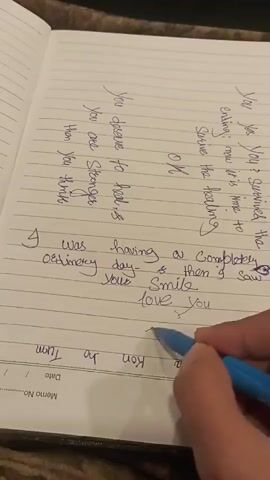 You Yes You? Survived the
ending; now it is time to
Survive the healing
OK
You deserve to heal, &
You are Stronger
than You think
I was having a completely
ordinary day - & then i saw
your Smile
love you
Kon ho Tum
Date / /
Memo No.